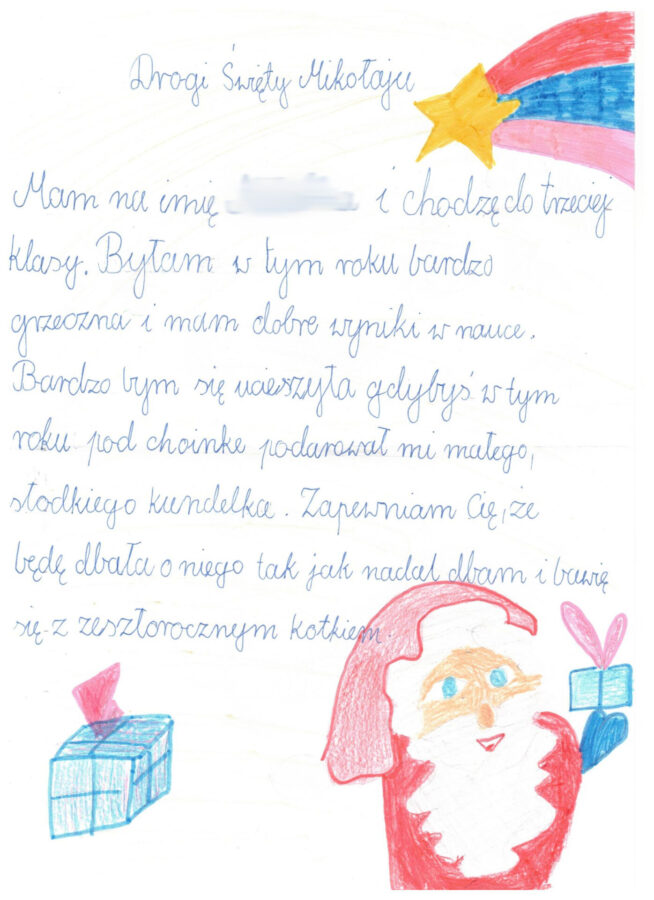 Drogi Święty Mikołaju
Mam na imię i chodzę do trzeciej
klasy. Byłam w tym roku bardzo
grzeczna i mam dobre wyniki w nauce.
Bardzo bym się ucieszyła gdybyś w tym
roku pod choinke podarował mi małego,
słodkiego kundelka. Zapewniam Cię, że
będę dbała o niego tak jak nadal dbam i bawię
się z zeszłorocznym kotkiem.